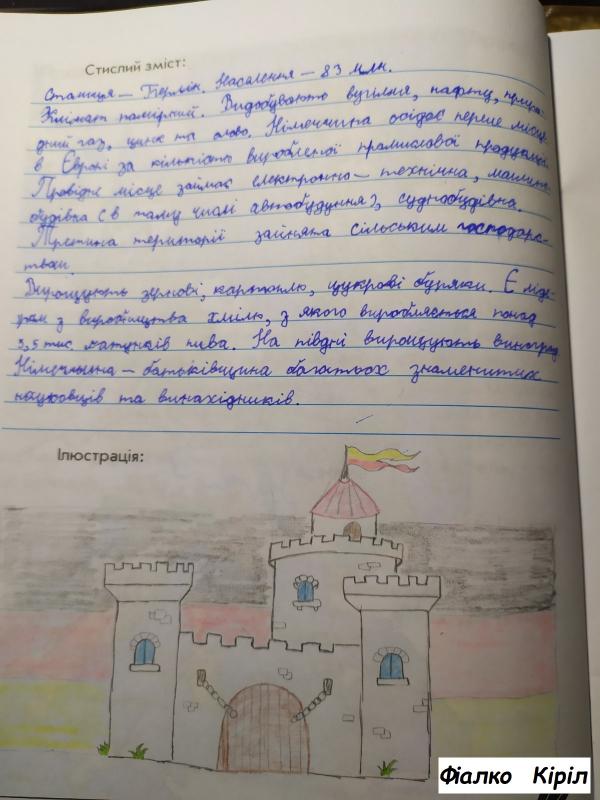 Стислий зміст:
Столиця – Берлін. Населення – 83 млн.
Клімат помірний. Видобувають вугілля, нафту, приро-
дний газ, цинк та олово. Німеччина посідає перше місце
в Європі за кількістю виробленої промислової продукції.
Провідне місце займає електронно – технічна, машино-
будівна (в тому числі автобудування), суднобудівна.
Третина території зайнята сільським господарс-
твом.
Вирощують зернові, картоплю, цукрові буряки. Є ліде-
ром з виробництва хмілю, з якого виробляється понад
3,5 тис. гатунків пива. На півдні вирощують виноград.
Німеччина – батьківщина багатьох знаменитих
науковців та винахідників.
Ілюстрація:
Фіалко Кіріл